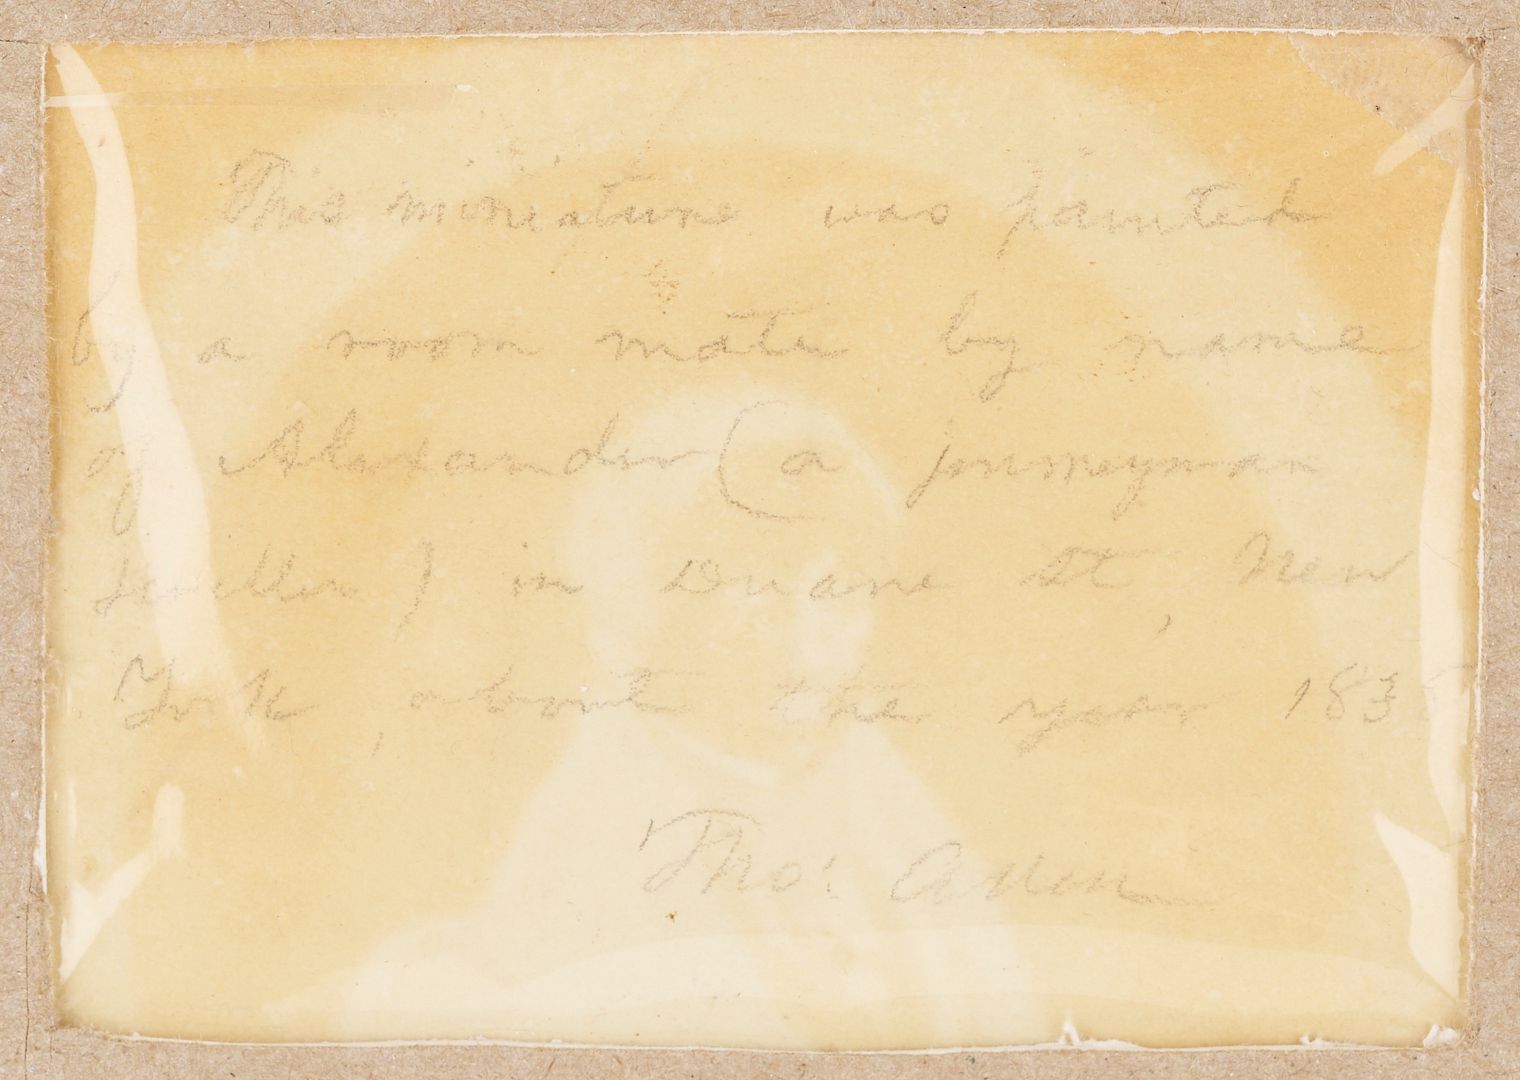 This miniature was painted
by a room mate by name
of Alexander (a journeyman
) in Duane St, New
York, about the year 183
Thos. Allen